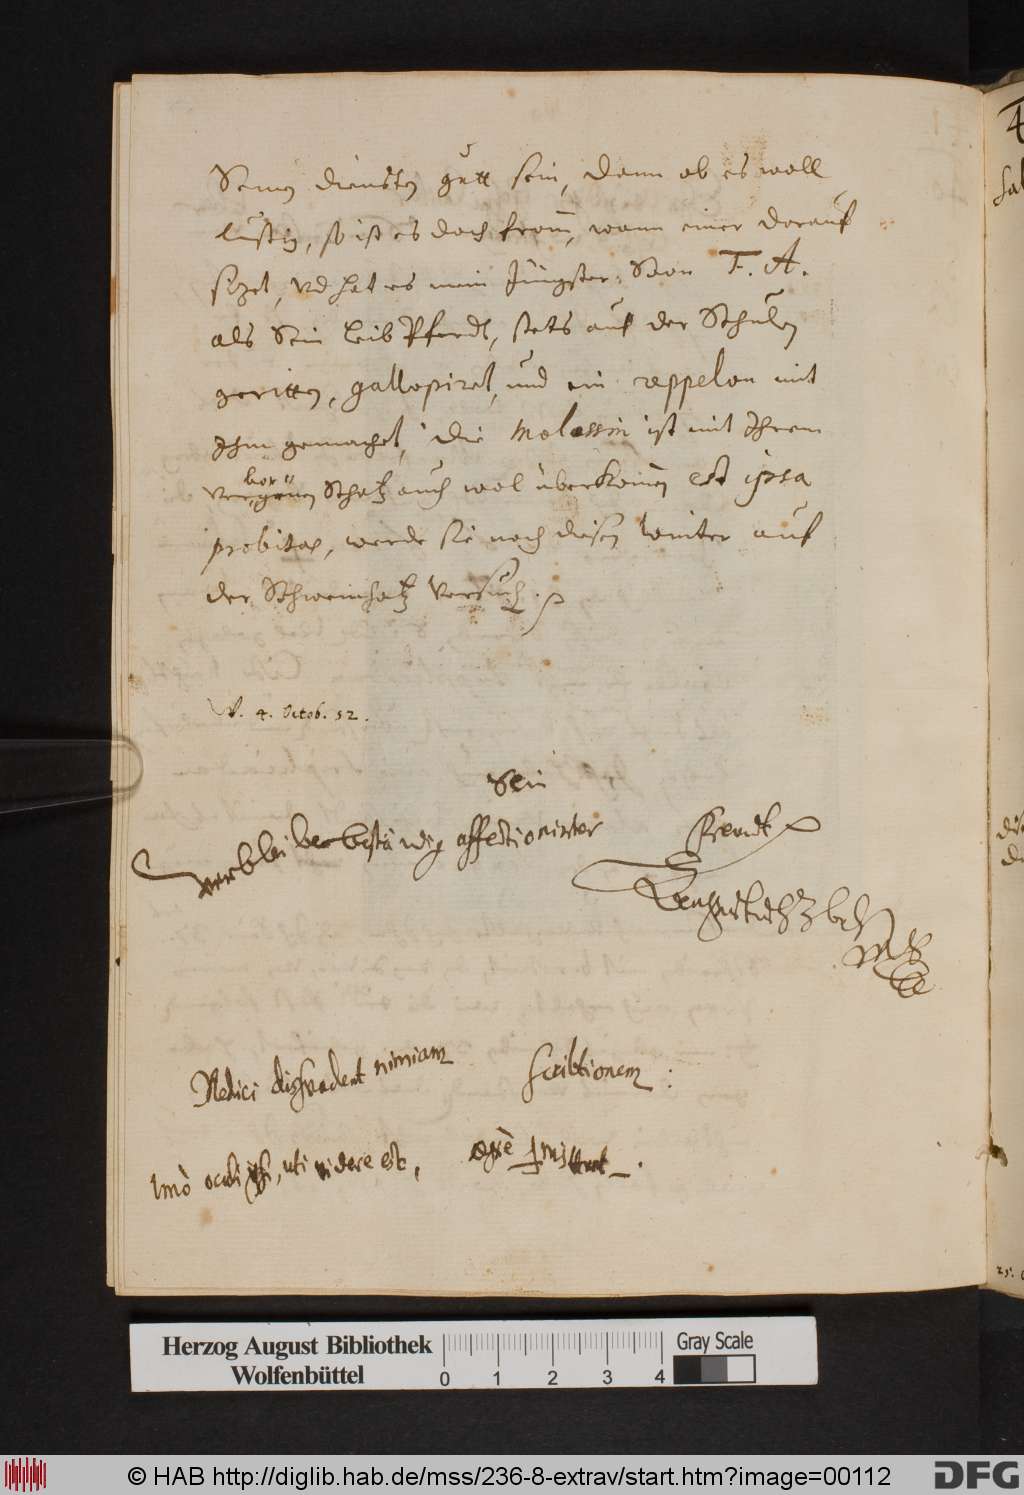 Seinen diensten gutt sein, dann ob es woll
lustig, so ist es doch from̄, wann einer darauf
sizet, vnd hat es mein Jüngster Son F. A.
als Sein Leib Pferdt, stets auf der Schulen
geritten, gallopiret, und ein reppelon mit
Ihm gemachet, die Molossin ist mit Ihrem
Schatz auch wol überkom̄en est ipsa
probitas, werde sie noch diesen Winter auf
der Schweinhatz versuchen.
W. 4. Octob. 52.
Sein
verbleibender beständig affectionirter Freundt
AugustusHzbuL
Medici dissuadent nimiam scribtionem:
Imò oculi ipsi, uti videre est, ægrè
25.
Herzog August Bibliothek
Wolfenbüttel
0 1 2 3 4
Gray Scale
© HAB http://diglib.hab.de/mss/236-8-extrav/start.htm?image=00112
DFG